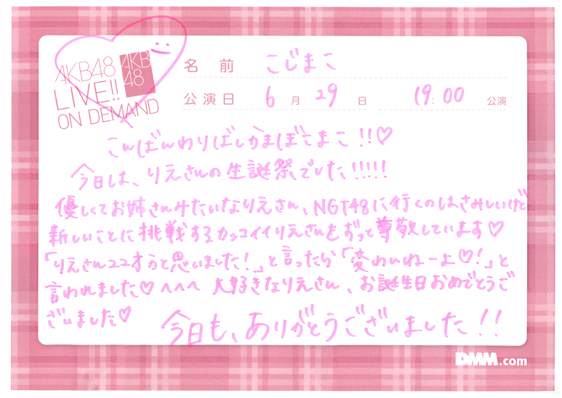 AKB48
LIVE!!
ON DEMAND
AKB
48
名前 こじまこ
公演日 6月29日 19:00 公演
こんばんわりばしかまぼこまこ!!♡
今日は、りえさんの生誕祭でした!!!!!
優しくてお姉さんみたいなりえさん、NGT48に行くのはさみしいけど
新しいことに挑戦するカッコイイりえさんをずっと尊敬しています♡
「りえさん22才かと思いました!」と言ったら「変わいねーよ♡!」と
言われました♡へへへ 大好きなりえさん、お誕生日おめでとうご
ざいました♡
今日も、ありがとうございました!!
DMM.com